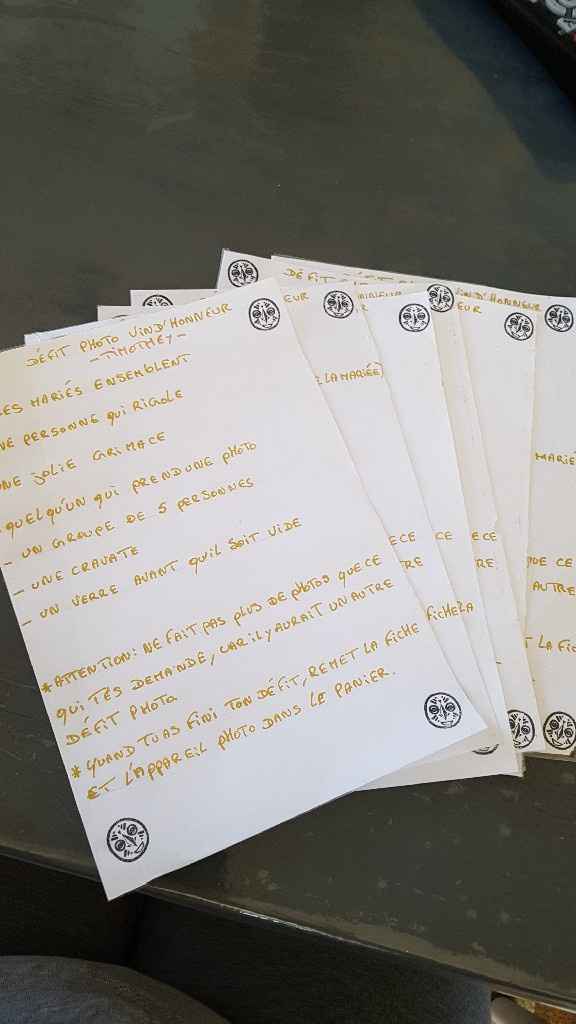 DÉFIT PHOTO VIN D'HONNEUR
- TIMOTHEY -
LES MARIÉS ENSEMBLENT
UNE PERSONNE QUI RIGOLE
UNE JOLIE GRIMACE
- QUELQU'UN QUI PREND UNE PHOTO
- UN GROUPE DE 5 PERSONNES
- UNE CRAVATE
- UN VERRE AVANT QU'IL SOIT VIDE
* ATTENTION: NE FAIT PAS PLUS DE PHOTOS QUE CE
QUI T'ÉS DEMANDÉ, CAR IL Y AURAIT UN AUTRE
DÉFIT PHOTO.
* QUAND TU AS FINI TON DÉFIT, REMET LA FICHE
ET L'APPAREIL PHOTO DANS LE PANIER.
DÉFIT
VIN D'HONNEUR
EUR
NNEUR
EUR
LA MARIÉE)
MARIÉ
ECE
TRE
ECE
TRE
QUE CE
AUTRE
FICHE LA
LA FIC